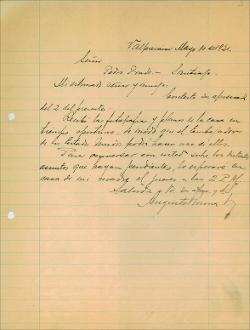 Valparaiso Mayo 10 de 1921.
Señor
Pedro Prado. — Santiago.
Mi estimado señor y amigo:
Contesto su apreciada
del 2 del presente.
Recibí la fotografía y planos de la casa en
tiempo oportuno, de modo que el Embajador
de los Estados Unidos podrá hacer uso de ellos.
Para conversar con usted sobre los distintos
asuntos que hayan pendientes, lo esperaré en
casa de mi el jueves a las 2 P.M.
Saluda a Ud. su amigo y S.S.
Augusto